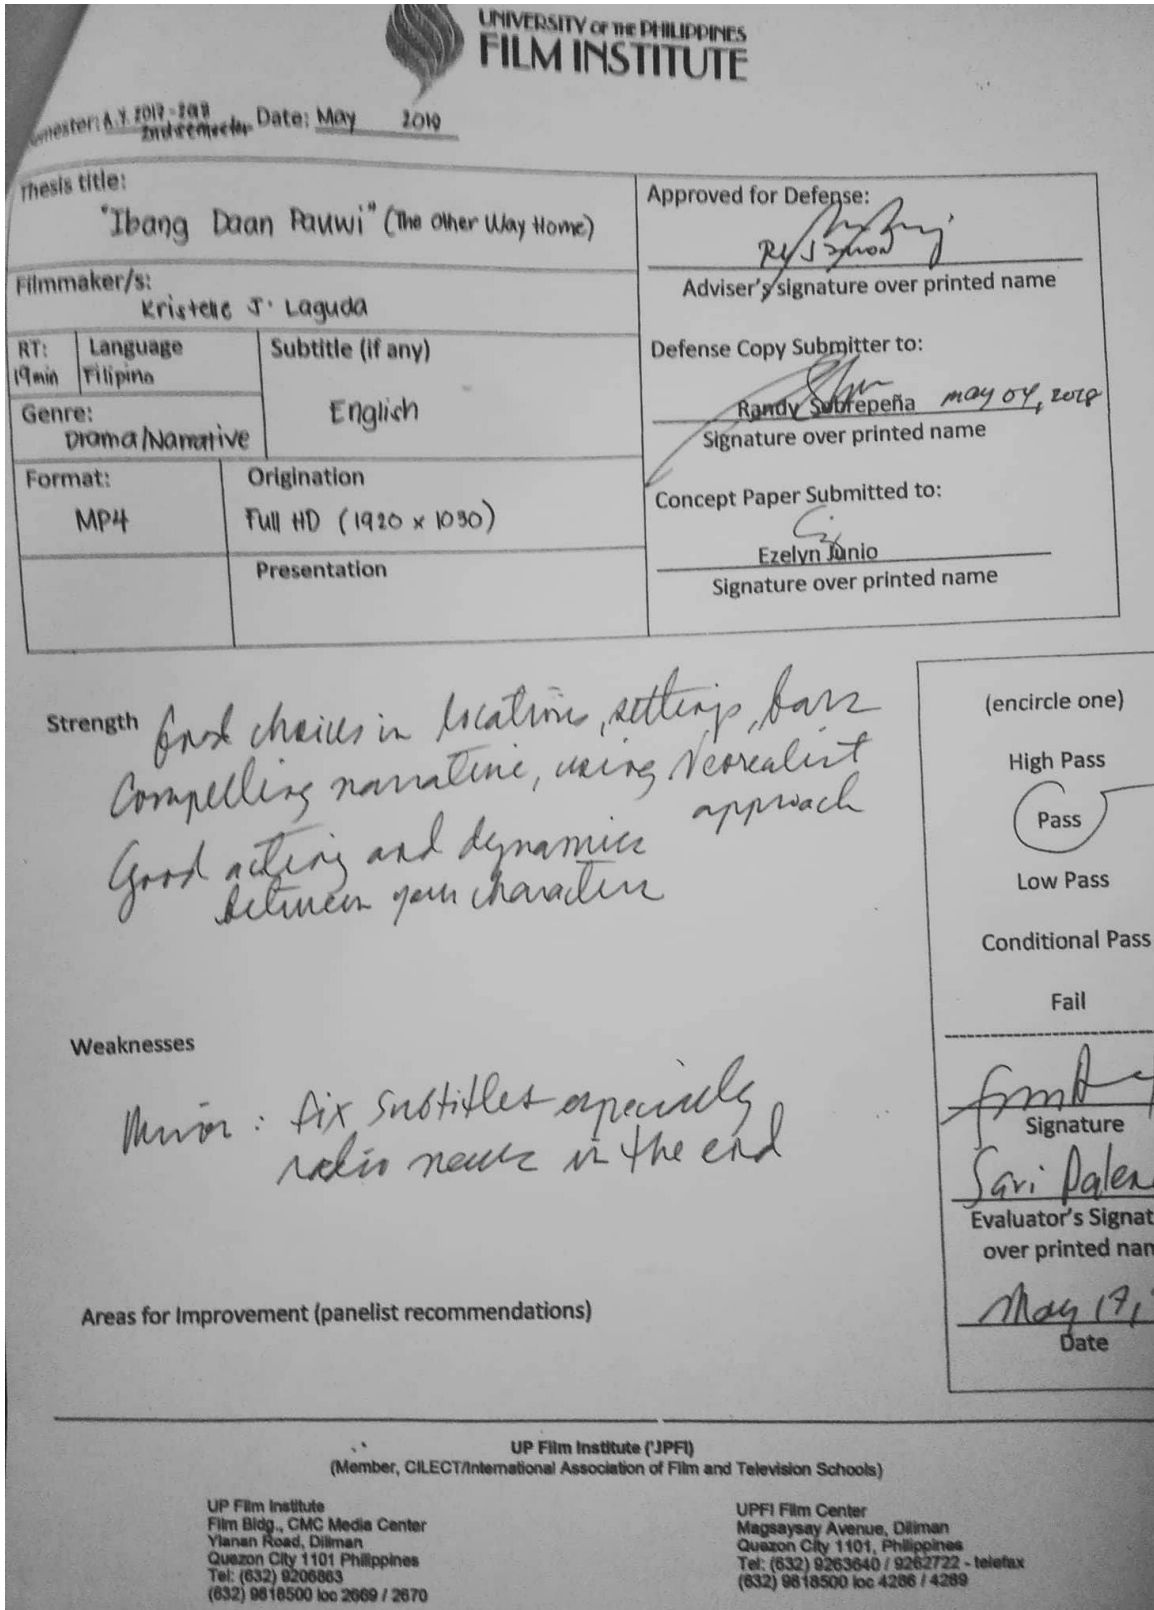 UNIVERSITY OF THE PHILIPPINES
FILM INSTITUTE
mester: A.Y. 2017-2018 Date: May 2018
2nd semester
Thesis title:
"Ibang Daan Pauwi" (The Other Way Home)
Filmmaker/s:
Kristelle J. Laguda
RT: 19min
Language
Filipino
Subtitle (if any)
English
Genre:
Drama/Narrative
Format:
MP4
Origination
Full HD (1920 x 1080)
Presentation
Approved for Defense:
Adviser's signature over printed name
Defense Copy Submitter to:
Randy Sobrepeña may 04, 2018
Signature over printed name
Concept Paper Submitted to:
Ezelyn Junio
Signature over printed name
Strength
Good choices in locations, settings, bars
Compelling narrative, using Neorealist
approach
Good acting and dynamics
between your characters
Weaknesses
Minor: fix subtitles especially
radio news in the end
Areas for Improvement (panelist recommendations)
(encircle one)
High Pass
Pass
Low Pass
Conditional Pass
Fail
Signature
Sari Dalen
Evaluator's Signat
over printed nam
May 17,
Date
UP Film Institute (UPFI)
(Member, CILECT/International Association of Film and Television Schools)
UP Film Institute
Film Bldg., CMC Media Center
Ylanan Road, Diliman
Quezon City 1101 Philippines
Tel: (632) 9206863
(632) 9818500 loc 2669 / 2670
UPFI Film Center
Magsaysay Avenue, Diliman
Quezon City 1101, Philippines
Tel: (632) 9263640 / 9262722 - telefax
(632) 9818500 loc 4286 / 4289